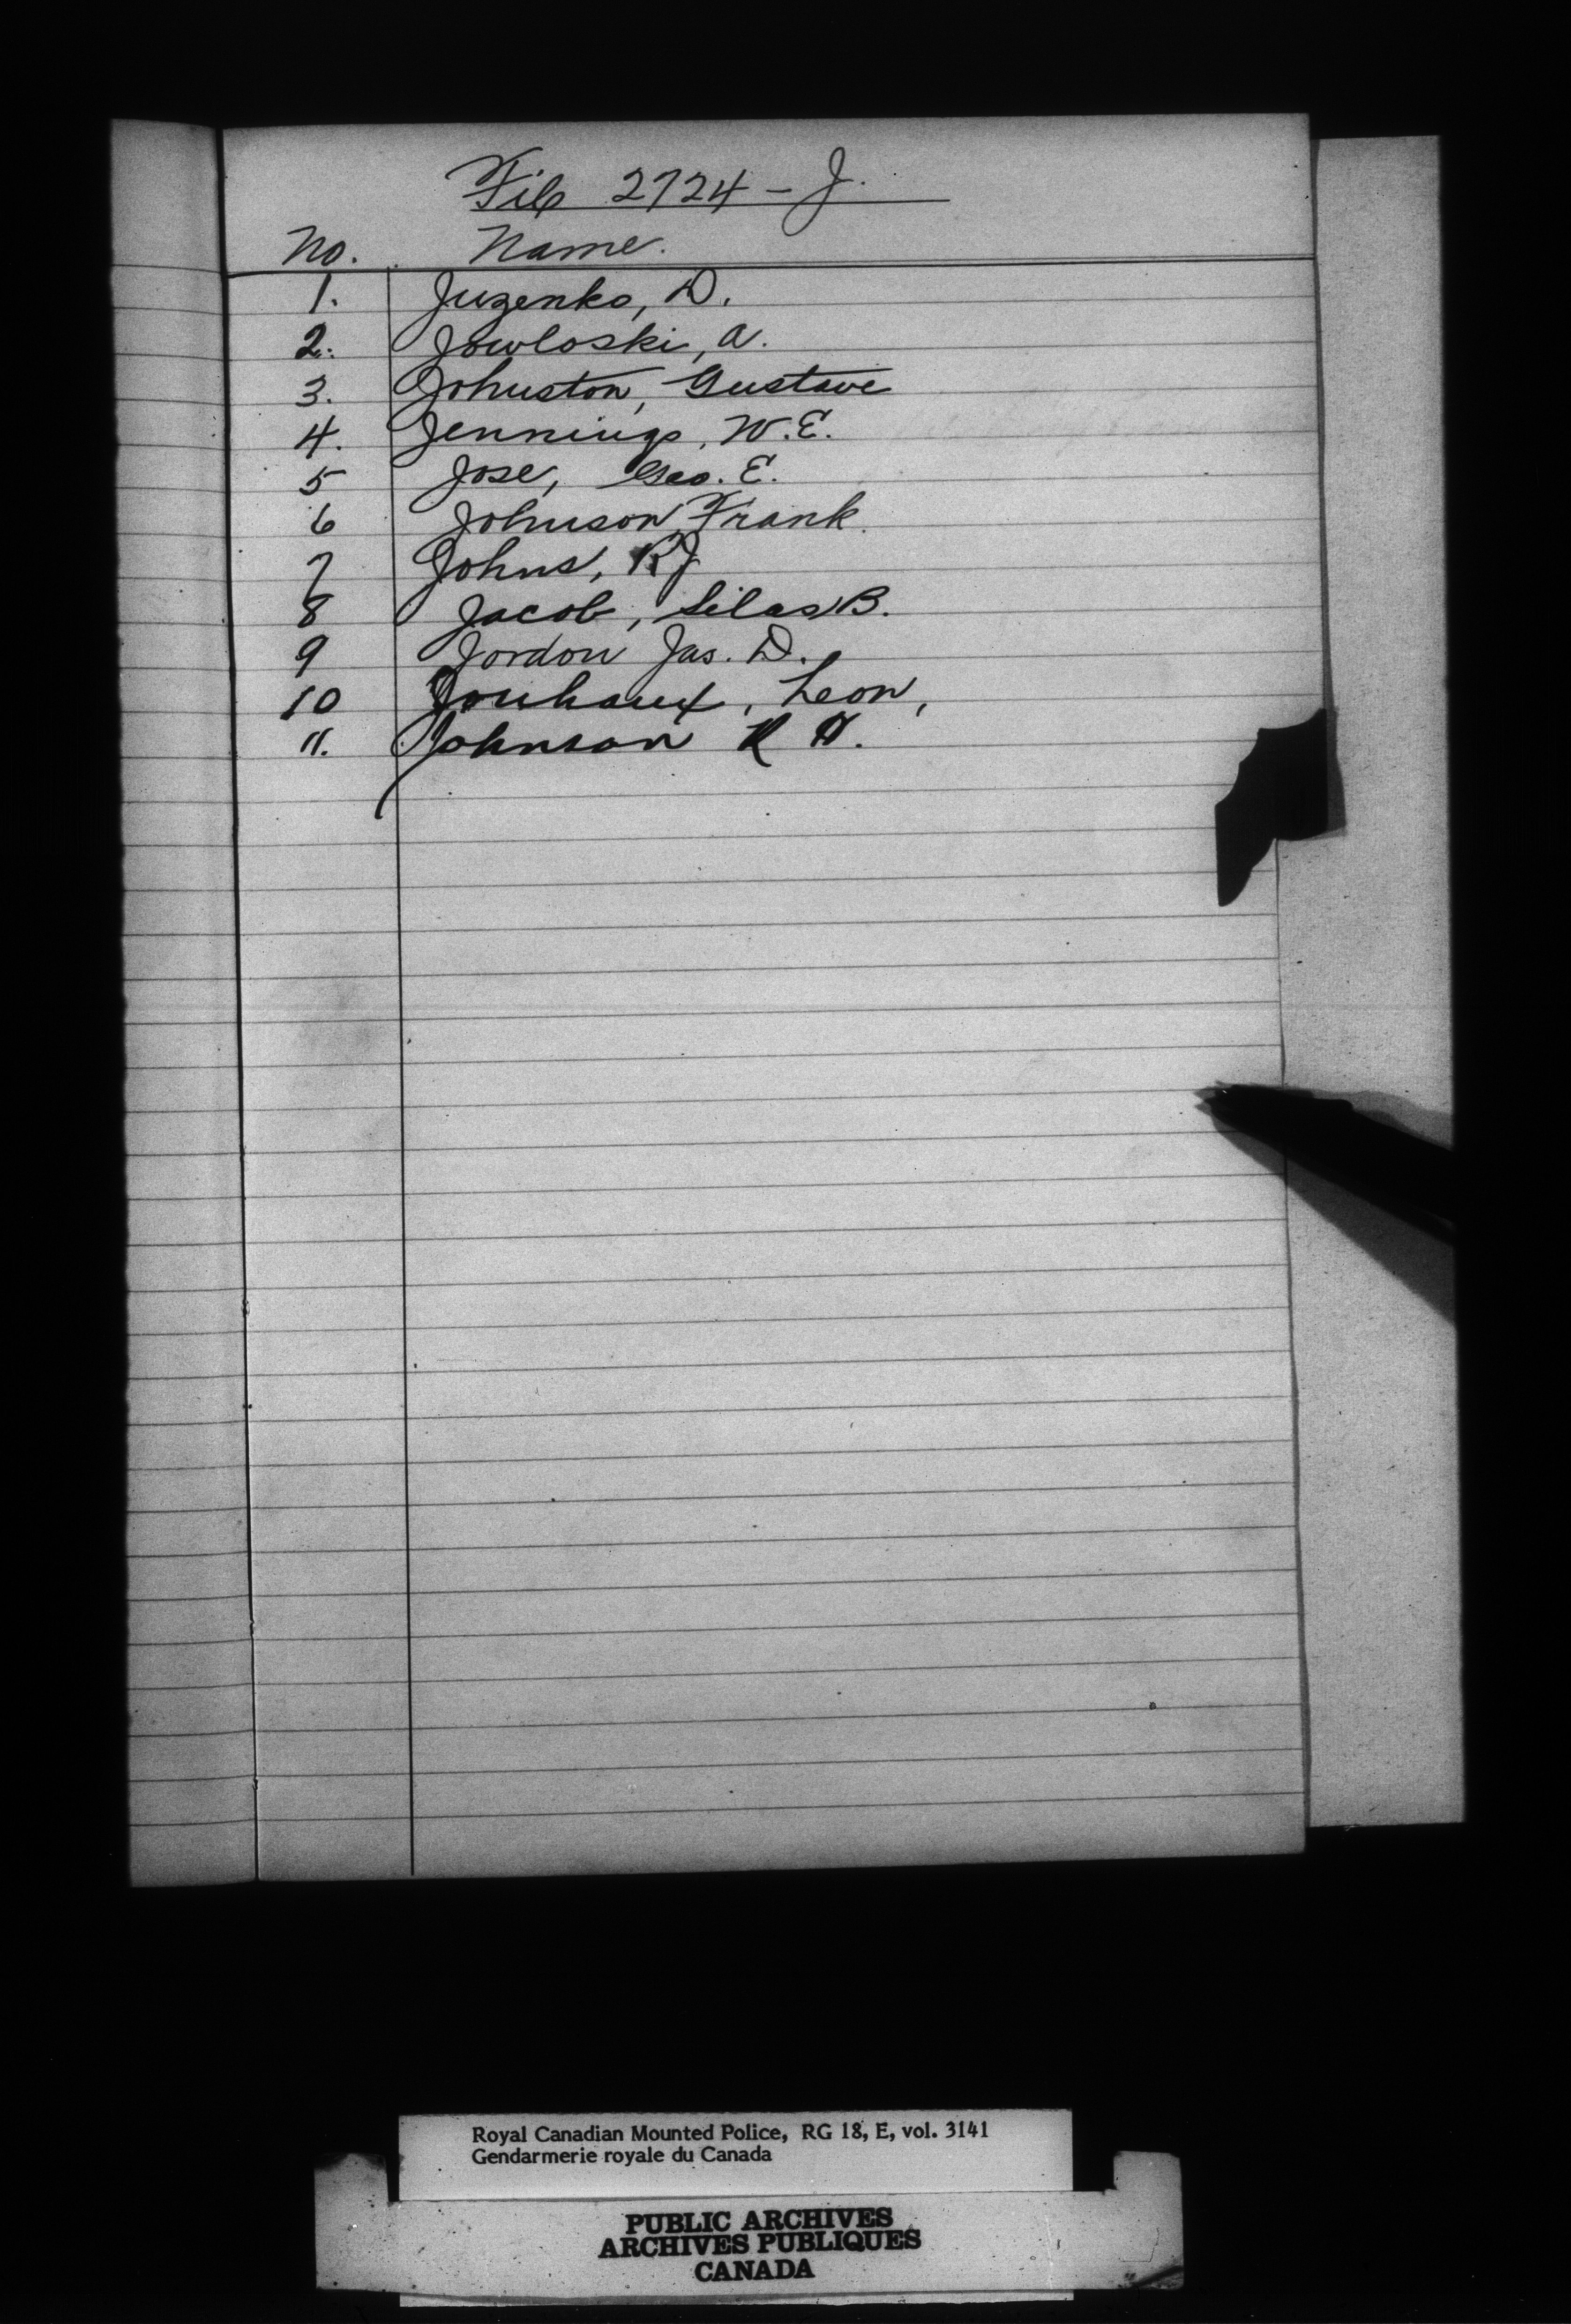 File 2724 - J.
No. Name.
1. Juzenko, D.
2. Jowloski, A.
3. Johnston, Gustave
4. Jennings, W.E.
5 Jose, Geo. E.
6 Johnson, Frank.
7 Johns, R J
8 Jacob, Silas B.
9 Jordon Jas. D.
10 Jouhaux, Leon,
11. Johnson R
Royal Canadian Mounted Police, RG 18, E, vol. 3141
Gendarmerie royale du Canada
PUBLIC ARCHIVES
ARCHIVES PUBLIQUES
CANADA